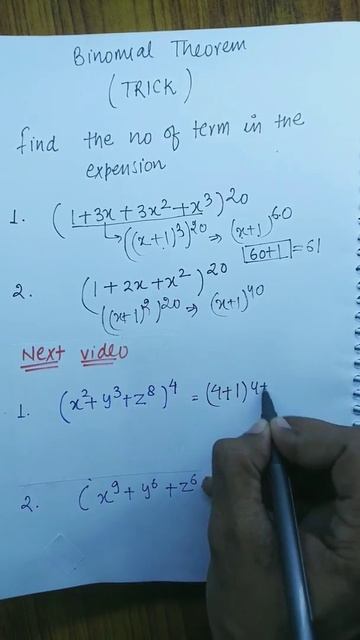 Binomial Theorem
(TRICK)
find the no of term in the
expension
1. (1+3x+3x²+x³)²⁰
((x+1)³)²⁰ ⇒ (x+1)⁶⁰
60+1 = 61
2. (1+2x+x²)²⁰
((x+1)²)²⁰ ⇒ (x+1)⁴⁰
Next video
1. (x²+y³+z⁸)⁴ = (4+1)(4+
2. (x⁹+y⁶+z⁶